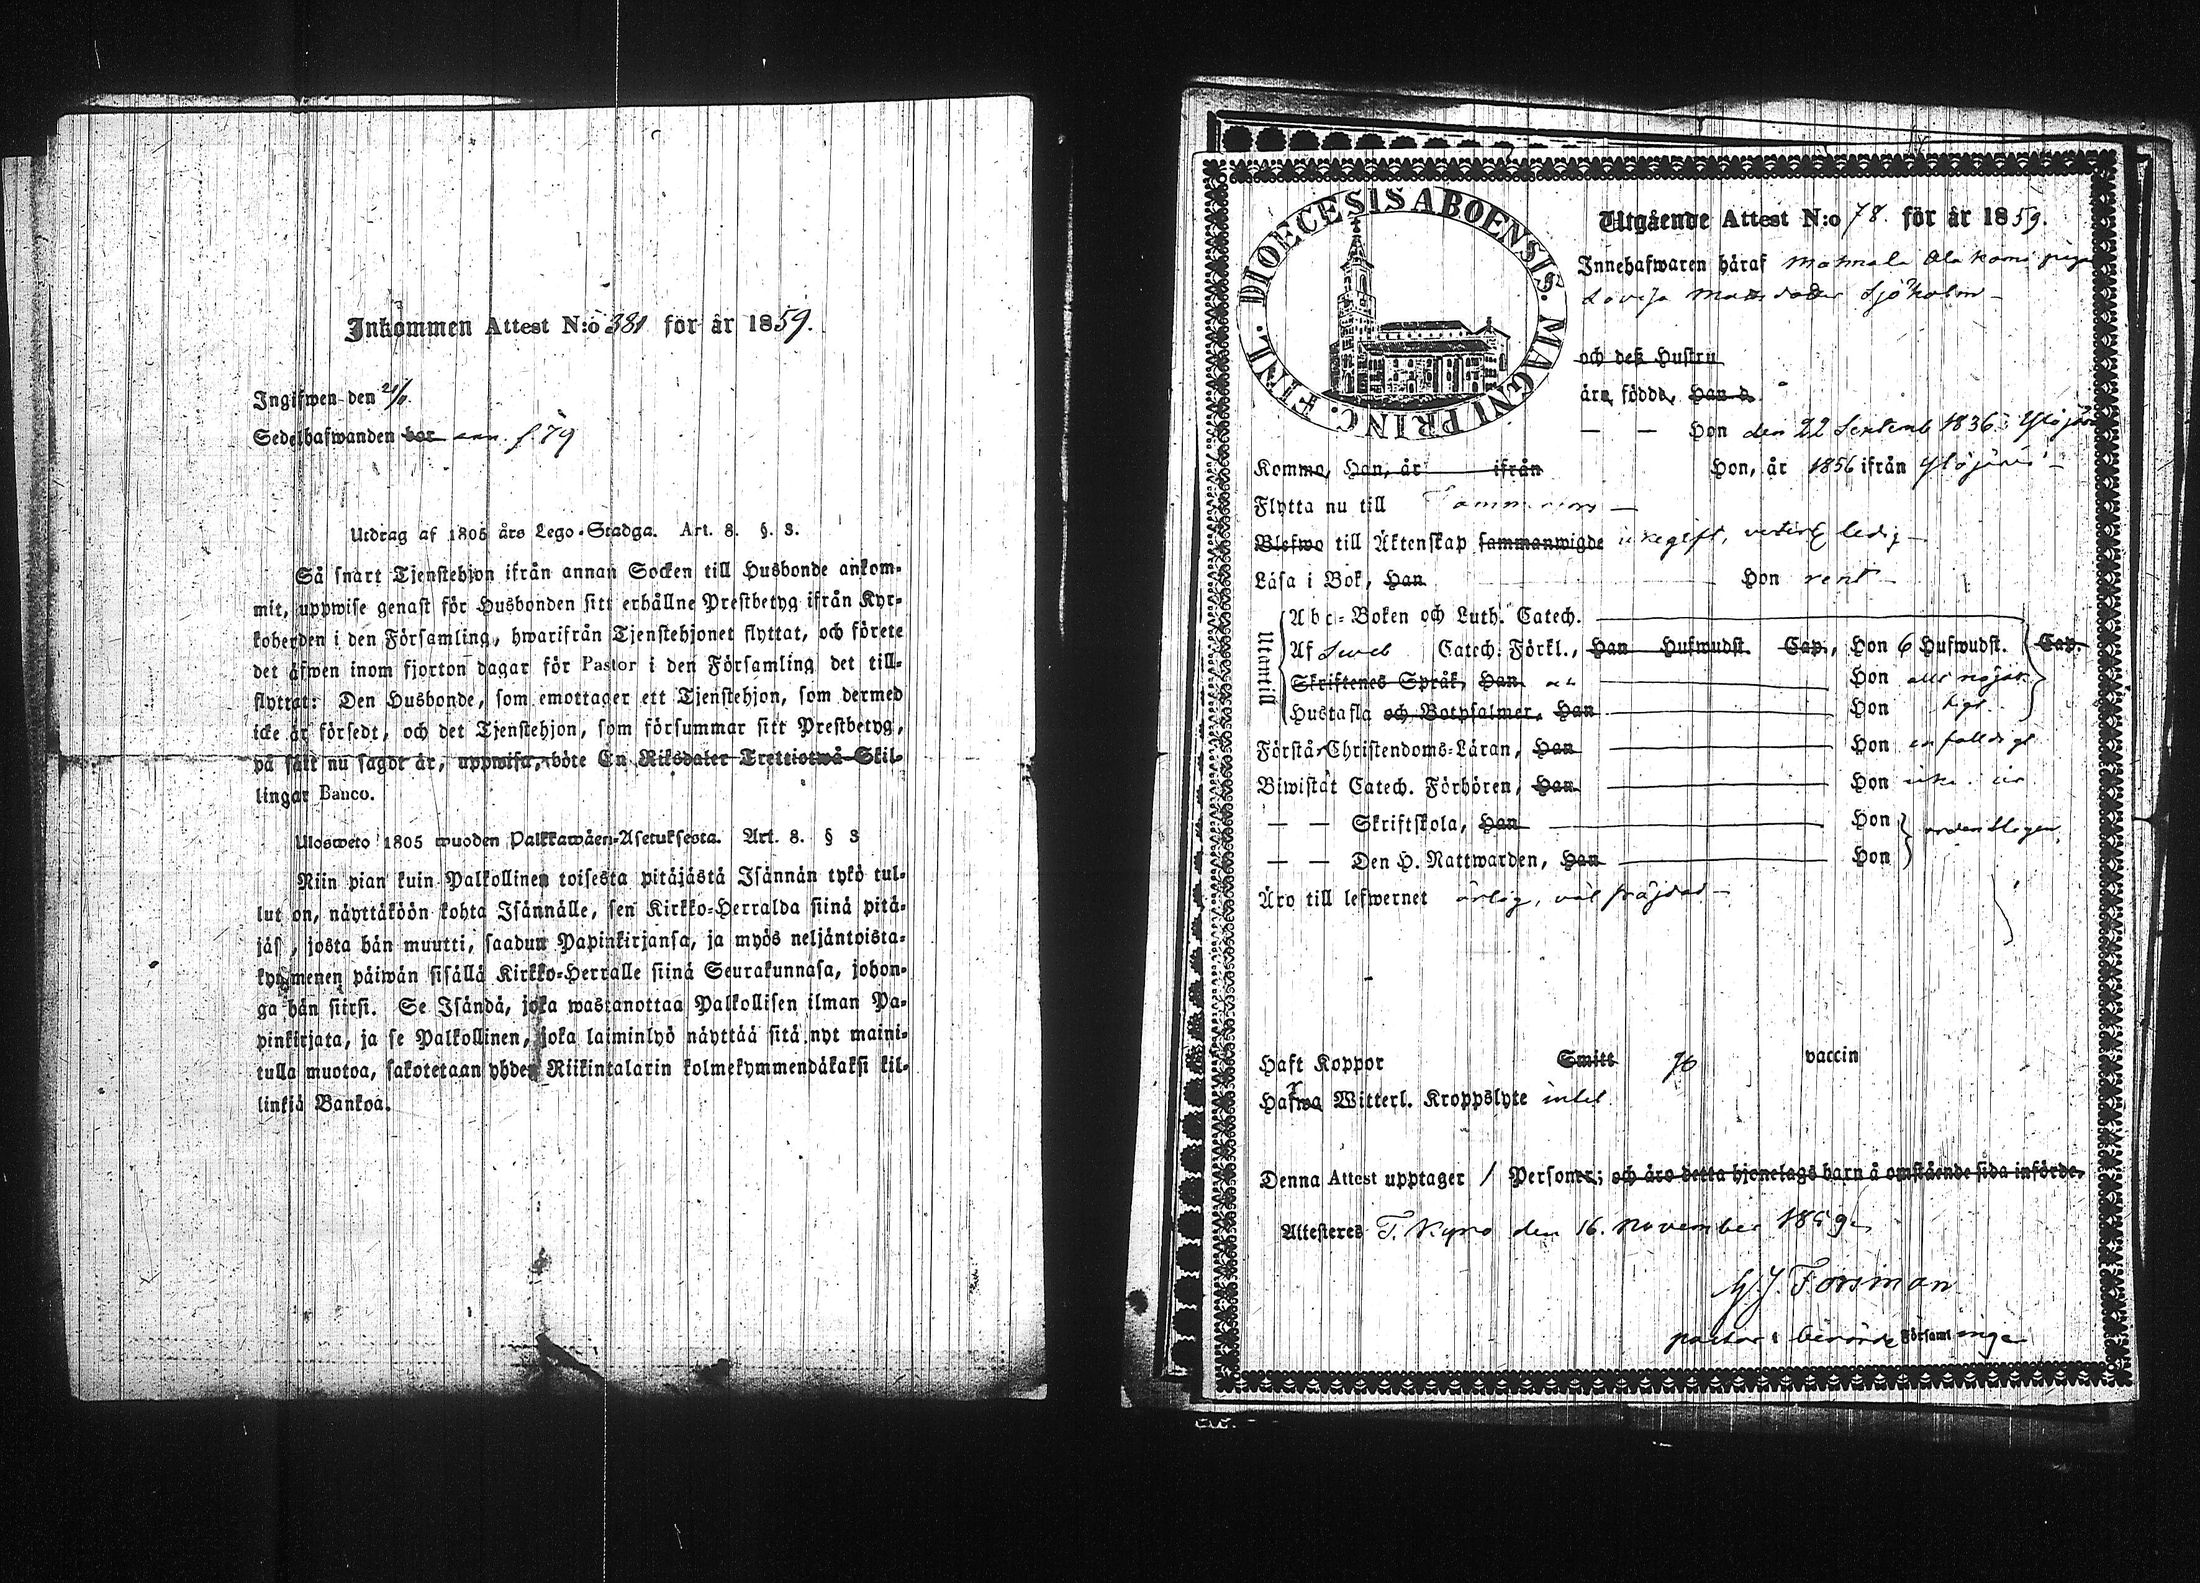 Inkommen Attest N:o 381 för år 1859.
Ingifwen den 21/11
Sedelhafwanden bor ann. f. 79
Utdrag af 1805 års Lego-Stadga. Art. 8. §. 3.
Så snart Tjenstehjon ifrån annan Socken till Husbonde ankom-
mit, uppwise genast för Husbonden sitt erhållne Prestbetyg ifrån Kyr-
koherden i den Församling, hwarifrån Tjenstehjonet flyttat, och förete
det äfwen inom fjorton dagar för Pastor i den Församling det till-
flyttat: Den Husbonde, som emottager ett Tjenstehjon, som dermed
icke är försedt, och det Tjenstehjon, som försummar sitt Prestbetyg,
på sätt nu sagdt är, uppwisa, böte En Riksdaler Trettiotwå Skil-
lingar Banco.
Ulosweto 1805 wuoden Palkkawäen-Asetuksesta. Art. 8. § 3
Niin pian kuin Palkollinen toisesta pitäjästä Isännän tykö tul-
lut on, näyttäköön kohta Isännälle, sen Kirkko-Herralda siinä pitä-
jäs, josta hän muutti, saadun Papinkirjansa, ja myös neljäntoista-
kymmenen päiwän sisällä Kirkko-Herralle siinä Seurakunnasa, johon-
ga hän siirsi. Se Isändä, joka wastanottaa Palkollisen ilman Pa-
pinkirjata, ja se Palkollinen, joka laiminlyö näyttää sitä nyt maini-
tulla muotoa, sakotetaan yhden Riikintalarin kolmekymmendäkaksi kil-
linkiä Bankoa.
DIOECESIS ABOENSIS. MAGNI PRINC. FINL.
Utgående Attest N:o 78. för år 1859.
Innehafwaren häraf
Lovisa Mattsdotter Sjöholm
och deß Hustru
äro födde, Han d.
— — Hon den 22 Septemb 1836 i Ylöjärvi
Komme, Han, år ifrån Hon, år 1856 ifrån Ylöjärvi
Flytta nu till Tammerfors
Blefwo till Äktenskap sammanwigde icke gift, ledig
Läsa i Bok, Han Hon rent
Utantill
Abc-Boken och Luth. Catech.
Af Sveb Catech. Förkl., Han Hufwudst. Cap., Hon 6 Hufwudst. Cap.
Skriftenes Språk, Han Hon
Hustafla och Botpsalmer, Han Hon
Förstår Christendoms-Läran, Han Hon enfaldigt
Biwistat Catech. Förhören, Han Hon
— — Skriftskola, Han Hon ordentligen
— — Den H. Nattwarden, Han Hon
Äro till lefwernet ärlig, väl fräjdad
Haft Koppor Smitt vaccin
Hafwa Witterl. Kroppslyte intet
Denna Attest upptager 1 Personer; och äro detta hjonelags barn å omstående sida införde.
Attesteres T. Kyro den 16. November 1859
G. J. Forsman
pastor i berörde Församlingar